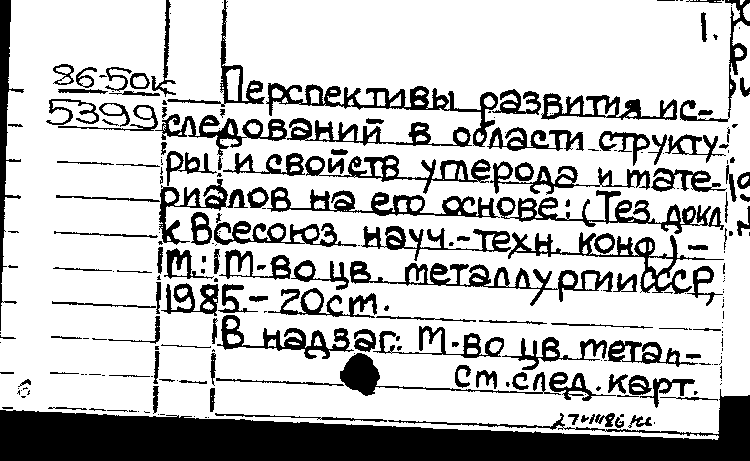 1.
86-50к
5399
Перспективы развития ис-
следований в области структу-
ры и свойств углерода и мате-
риалов на его основе: (Тез. докл.
к Всесоюз. науч.-техн. конф.).-
М.: М-во цв. металлургии СССР,
1985.- 20 см.
В надзаг.: М-во цв. метал-
См. след. карт.